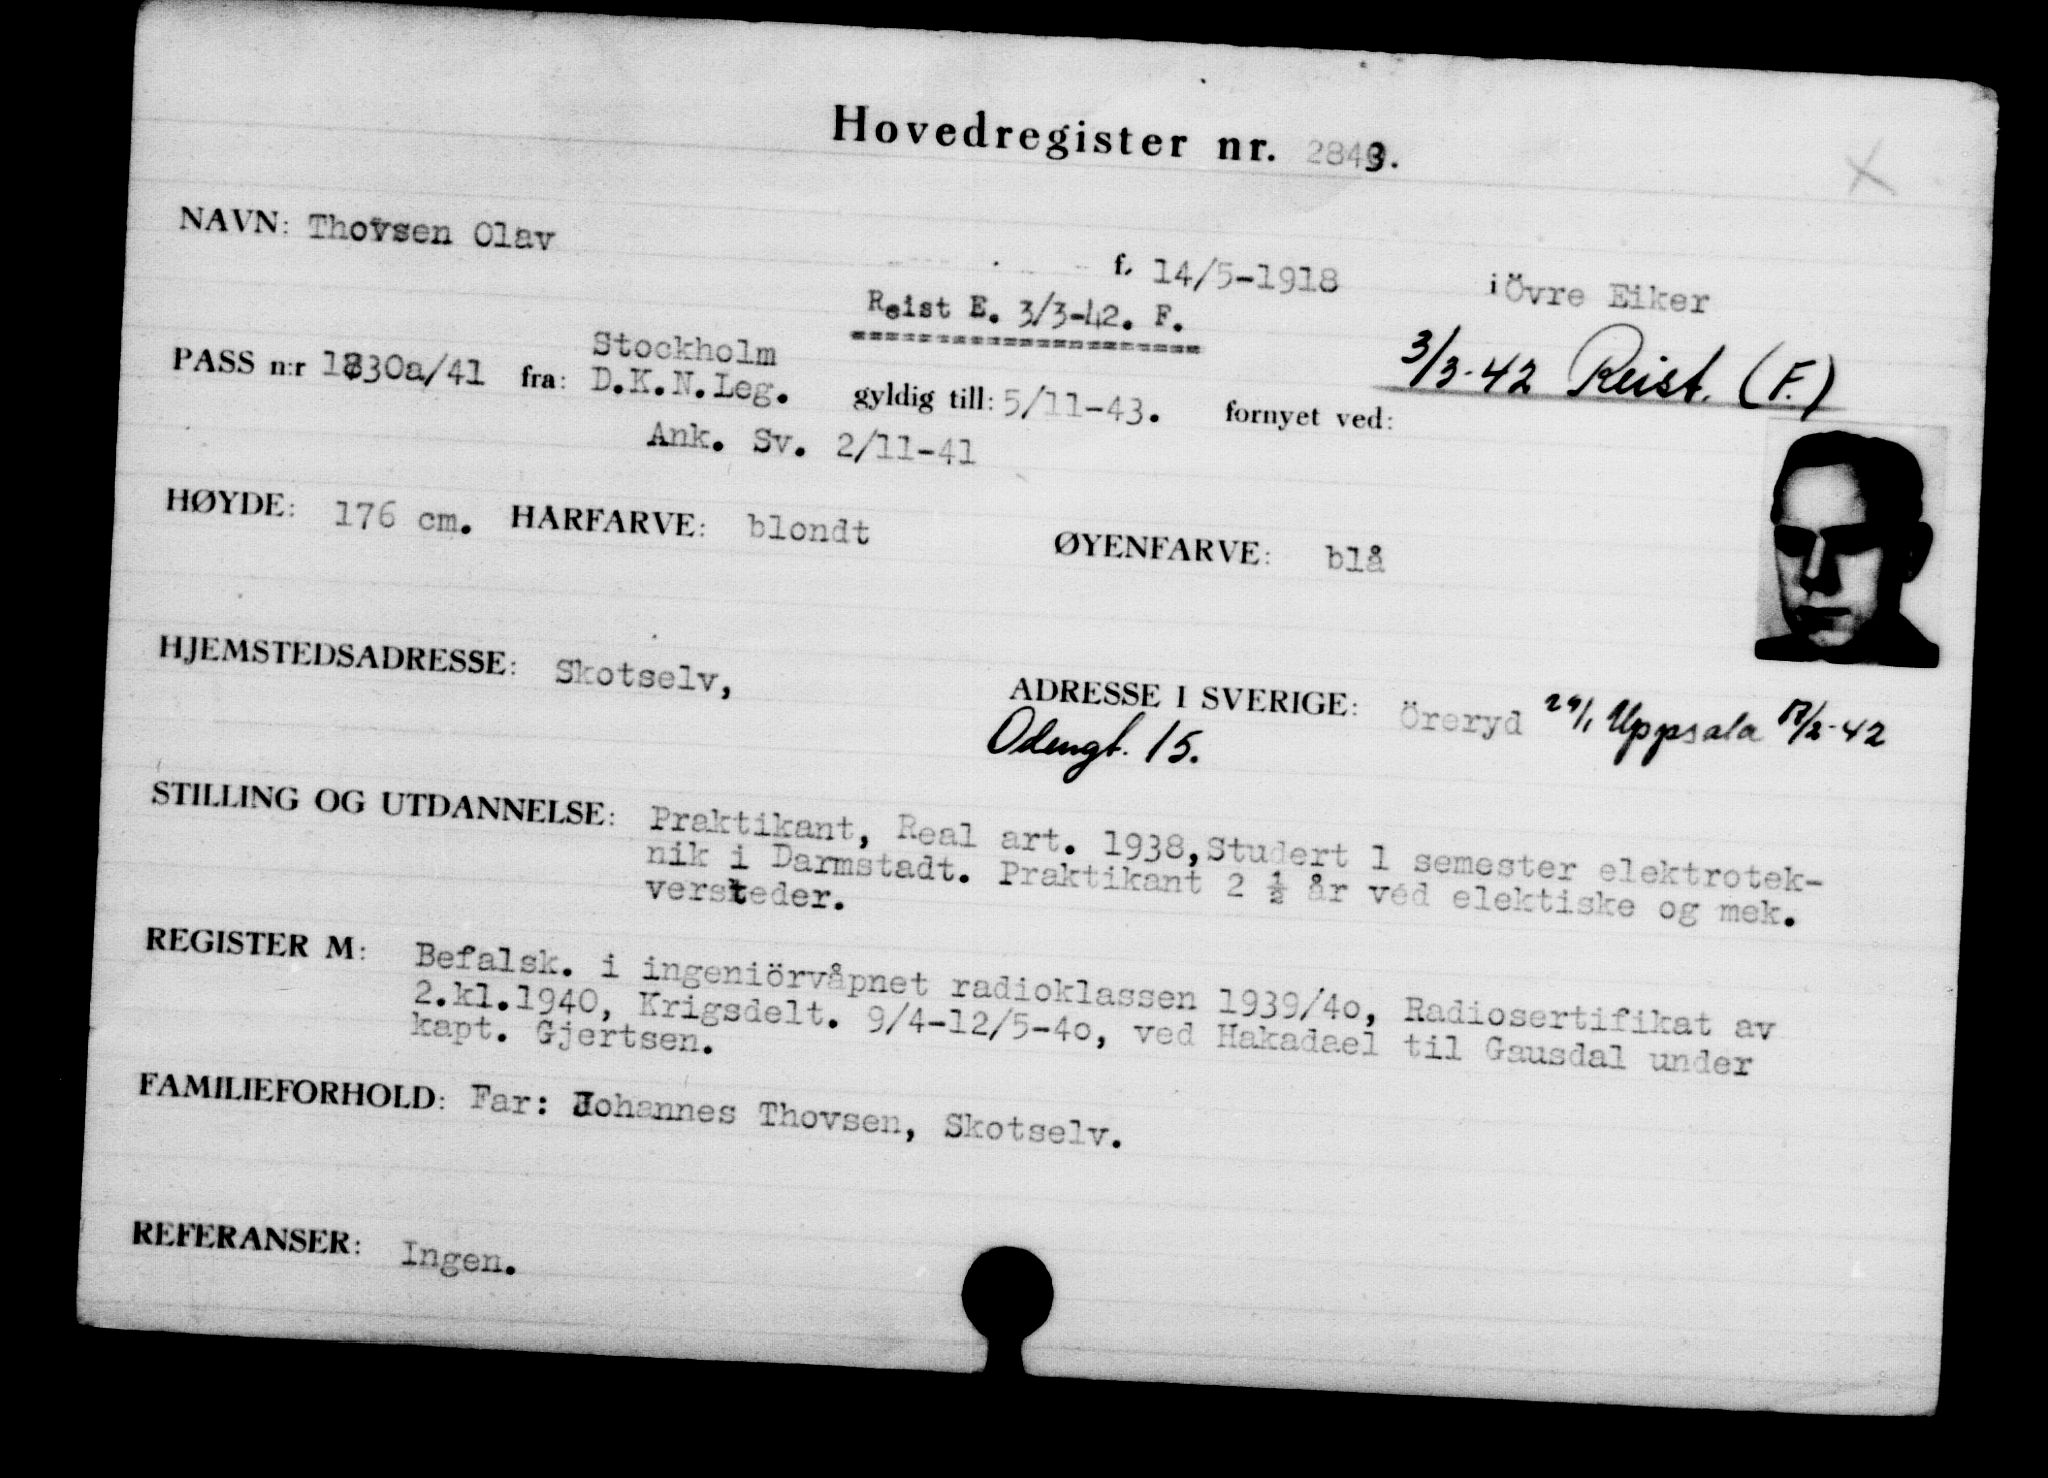 Hovedregister nr. 2843.
NAVN: Thovsen Olav
f. 14/5-1918 i Övre Eiker
Reist E. 3/3-42. F.
3/3-42 Reist. (F.)
Stockholm
PASS n:r 1830a/41 fra: D.K.N.Leg. gyldig till: 5/11-43. fornyet ved:
Ank. Sv. 2/11-41
HØYDE: 176 cm. HARFARVE: blondt ØYENFARVE: blå
HJEMSTEDSADRESSE: Skotselv,
ADRESSE I SVERIGE: Öreryd 29/1 Uppsala 17/2-42
Odengt. 15.
STILLING OG UTDANNELSE: Praktikant, Real art. 1938, Studert 1 semester elektrotek-
nik i Darmstadt. Praktikant 2 ½ år ved elektiske og mek.
versteder.
REGISTER M: Befalsk. i ingeniörvåpnet radioklassen 1939/4o, Radiosertifikat av
2.kl.1940, Krigsdelt. 9/4-12/5-4o, ved Hakadael til Gausdal under
kapt. Gjertsen.
FAMILIEFORHOLD: Far: Johannes Thovsen, Skotselv.
REFERANSER: Ingen.